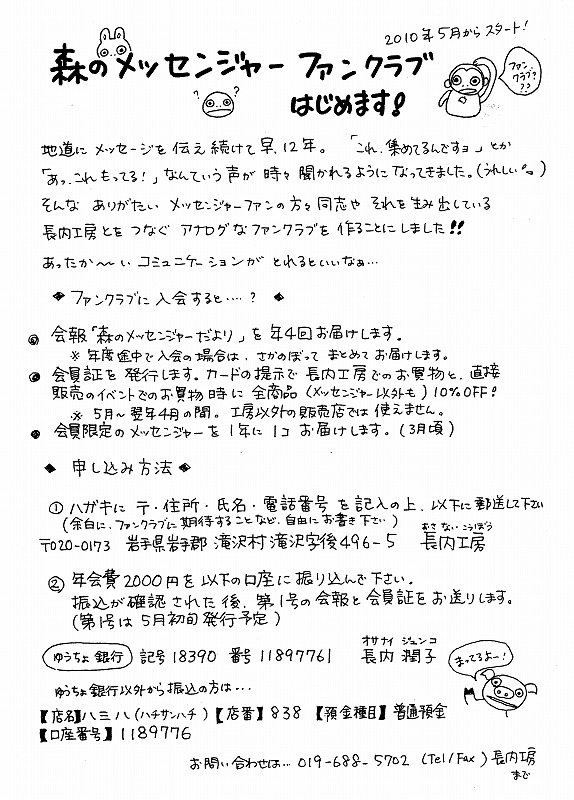 2010年5月からスタート!
森のメッセンジャー ファンクラブ
はじめます!
ファンクラブ???
? ?
地道に メッセージを 伝え 続けて 早、12年。 「これ、集めてるんですョ」とか
「あっ、これもってる!」なんていう声が 時々 聞かれるように なってきました。(うれしい°。)
そんな ありがたい メッセンジャーファンの方々同志や それを生み出している
長内工房とを つなぐ アナログなファンクラブを 作ることにしました!!
あったか〜い コミュニケーションが とれるといいなぁ…
◆ ファンクラブに 入会すると‥‥? ◆
◎ 会報「森のメッセンジャーだより」を 年4回お届けします。
※ 年度途中で入会の場合は、さかのぼって まとめてお届けします。
◎ 会員証を 発行します。カードの提示で 長内工房でのお買物と、直接
販売のイベントでのお買物時に 全商品 (メッセンジャー以外も) 10%OFF!
※ 5月〜翌年4月の間。工房以外の販売店では 使えません。
◎ 会員限定のメッセンジャーを 1年に1コ お届けします。(3月頃)
◆ 申し込み方法 ◆
① ハガキに 〒・住所・氏名・電話番号 を記入の上、以下に郵送して下さい
(余白に、ファンクラブに期待することなど、自由にお書き下さい)
〒020-0173 岩手県岩手郡 滝沢村滝沢字後496-5 長内工房
おさないこうぼう
② 年会費2000円を以下の口座に振り込んで下さい。
振込が確認された後、第1号の会報と会員証をお送りします。
(第1号は5月初旬発行予定)
ゆうちょ銀行 記号18390 番号11897761 長内 潤子
オサナイ ジュンコ
まってるよー!
ゆうちょ銀行以外から振込の方は…
【店名】八三八(ハチサンハチ)【店番】838 【預金種目】普通預金
【口座番号】1189776
お問い合わせは… 019-688-5702 (Tel/Fax) 長内工房
まで